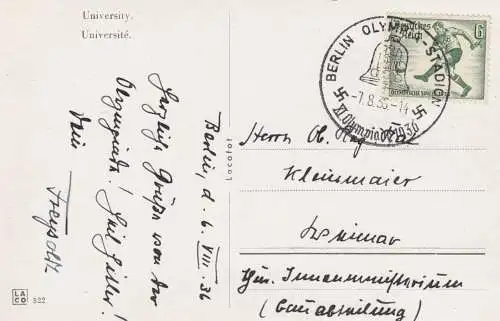 University.
Université.
Berlin, d. 6. VIII. 36
Herzliche Grüße von der
Olympiade! Heil Hitler!
Dein
Locatot
LA
CO
522
BERLIN OLYMPIA-STADION
-7.8.36.-14
XI. Olympiade 1936
Deutsches
Reich
6
Herrn Ob. Reg.
Kleinmaier
Weimar
Innenministerium
(Bauabteilung)